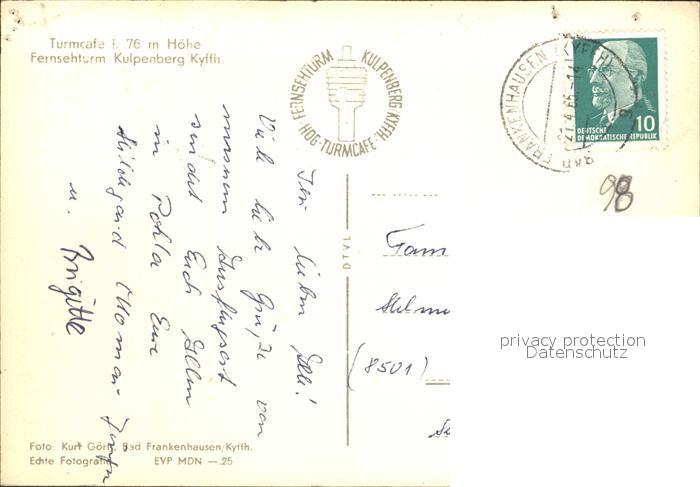 Turmcafe i. 76 m Höhe
Fernsehturm Kulpenberg Kyffh.
FERNSEHTURM KULPENBERG KYFFH.
HOG "TURMCAFE"
BAD FRANKENHAUSEN (KYFFH)
21.4.66-14
DEUTSCHE
DEMOKRATISCHE REPUBLIK
10
98
Ihr lieben
Viele liebe Grüße von
unserem Ausflugsort
sendet Euch allen
in Eure
Hildegard
u. Brigitte
DTVL
Fam
(8501)
privacy protection
Datenschutz
Foto: Kurt Bad Frankenhausen/Kyffh.
Echte Fotografie EVP MDN —.25